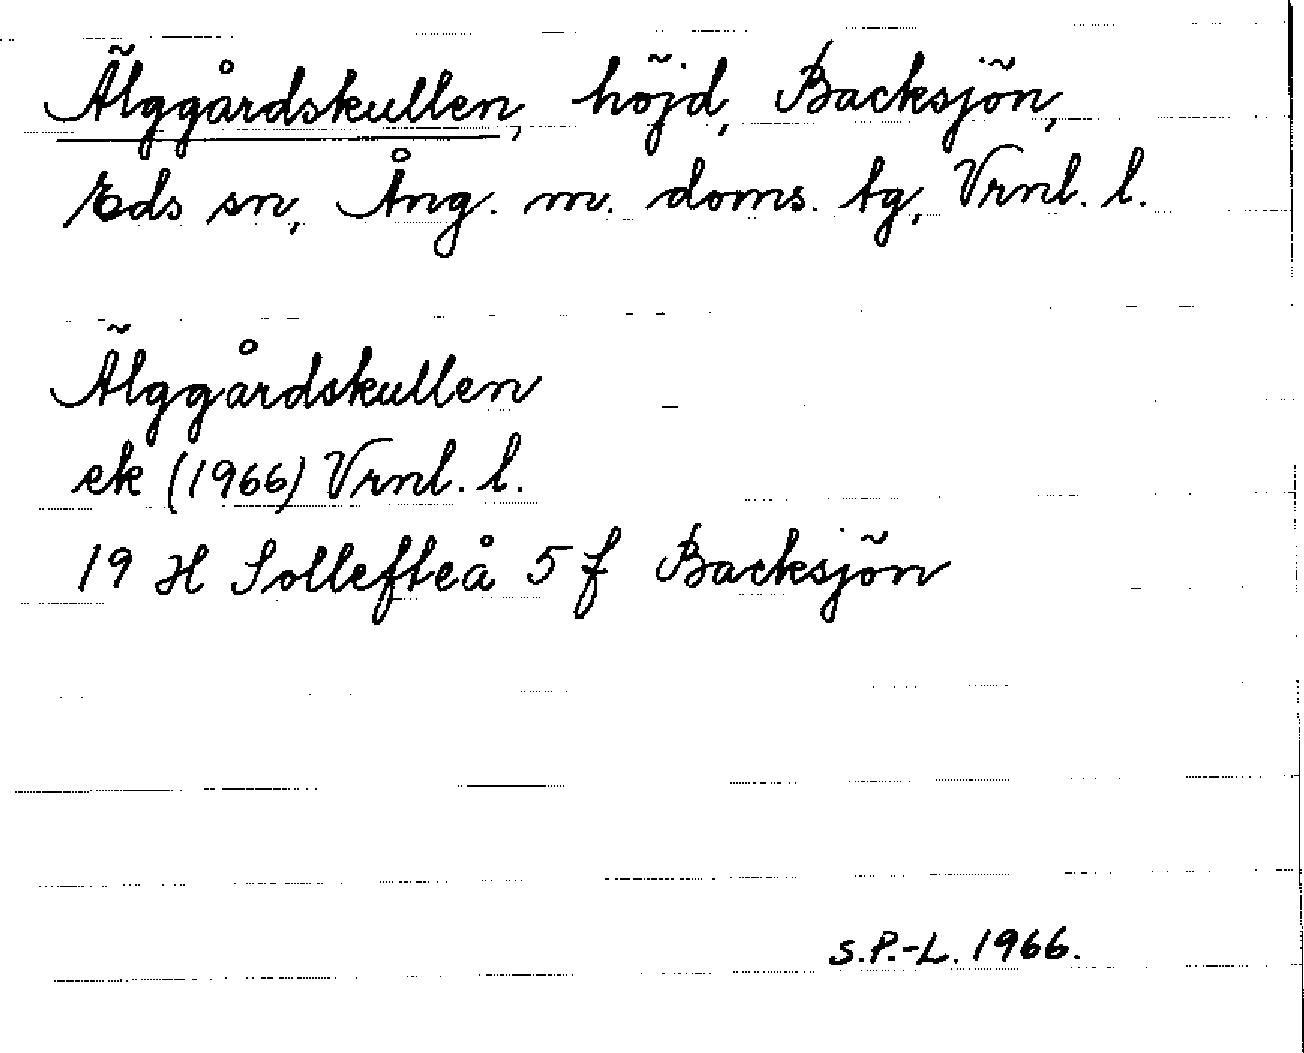 Älggårdskullen, höjd, Backsjön,
Eds sn, Ång. m. doms. tg, Vrnl. l.
Älggårdskullen
ek (1966) Vrnl. l.
19 H Sollefteå 5 f Backsjön
S.P.-L. 1966.